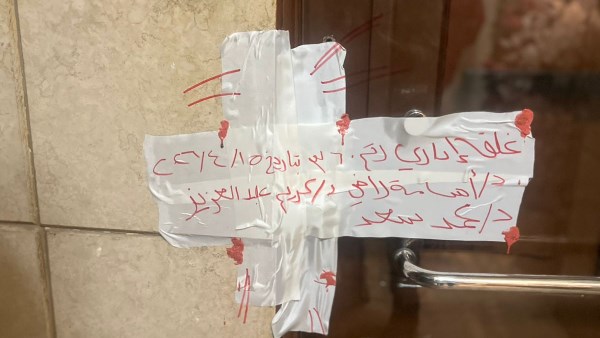 غلق إداري رقم ٣٦٠ بتاريخ ٢٠٢٤/٤/١٥
د/أسامة راضي د/كريم عبد العزيز
د/محمد سعد